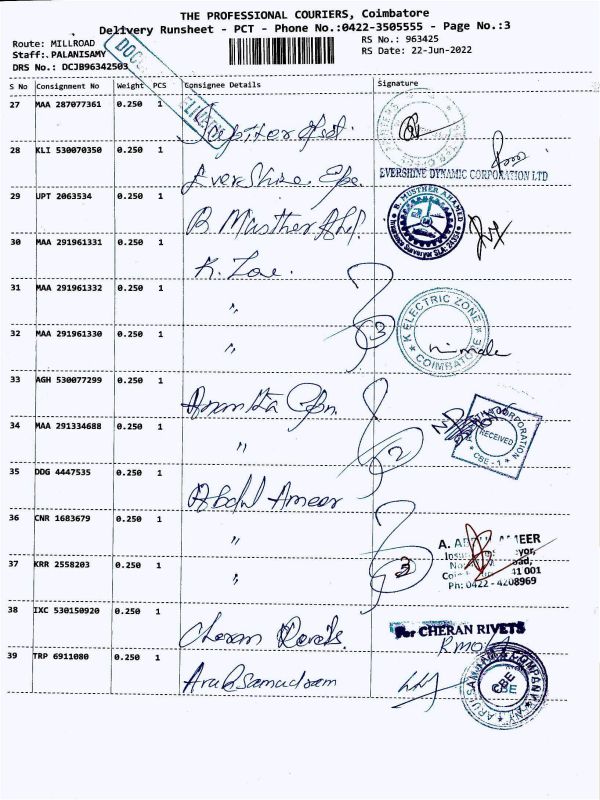 THE PROFESSIONAL COURIERS, Coimbatore
Delivery Runsheet - PCT - Phone No.:0422-3505555 - Page No.:3
Route: MILLROAD
RS No.: 963425
Staff: PALANISAMY
RS Date: 22-Jun-2022
DRS No.: DCJB96342503
S No Consignment No Weight PCS Consignee Details Signature
27 MAA 287077361 0.250 1
28 KLI 530070350 0.250 1 EverShine
EVERSHINE DYNAMIC CORPORATION LTD
29 UPT 2063534 0.250 1 B. Musther Ahd.
B. MUSTHER AHAMED
30 MAA 291961331 0.250 1 K. Zone.
31 MAA 291961332 0.250 1 "
3
K ELECTRIC ZONE
COIMBATORE
32 MAA 291961330 0.250 1 "
nirmala
33 AGH 530077299 0.250 1
34 MAA 291334688 0.250 1 "
2
CORPORATION
RECEIVED
CBE - 1
35 DDG 4447535 0.250 1 Abdul Ameer
36 CNR 1683679 0.250 1 "
37 KRR 2558203 0.250 1 "
3
A. AMEER
Ph: 0422 - 4208969
38 IXC 530150920 0.250 1 Cheran Rivets.
For CHERAN RIVETS
39 TRP 6911080 0.250 1 Arulsamudram
CBE